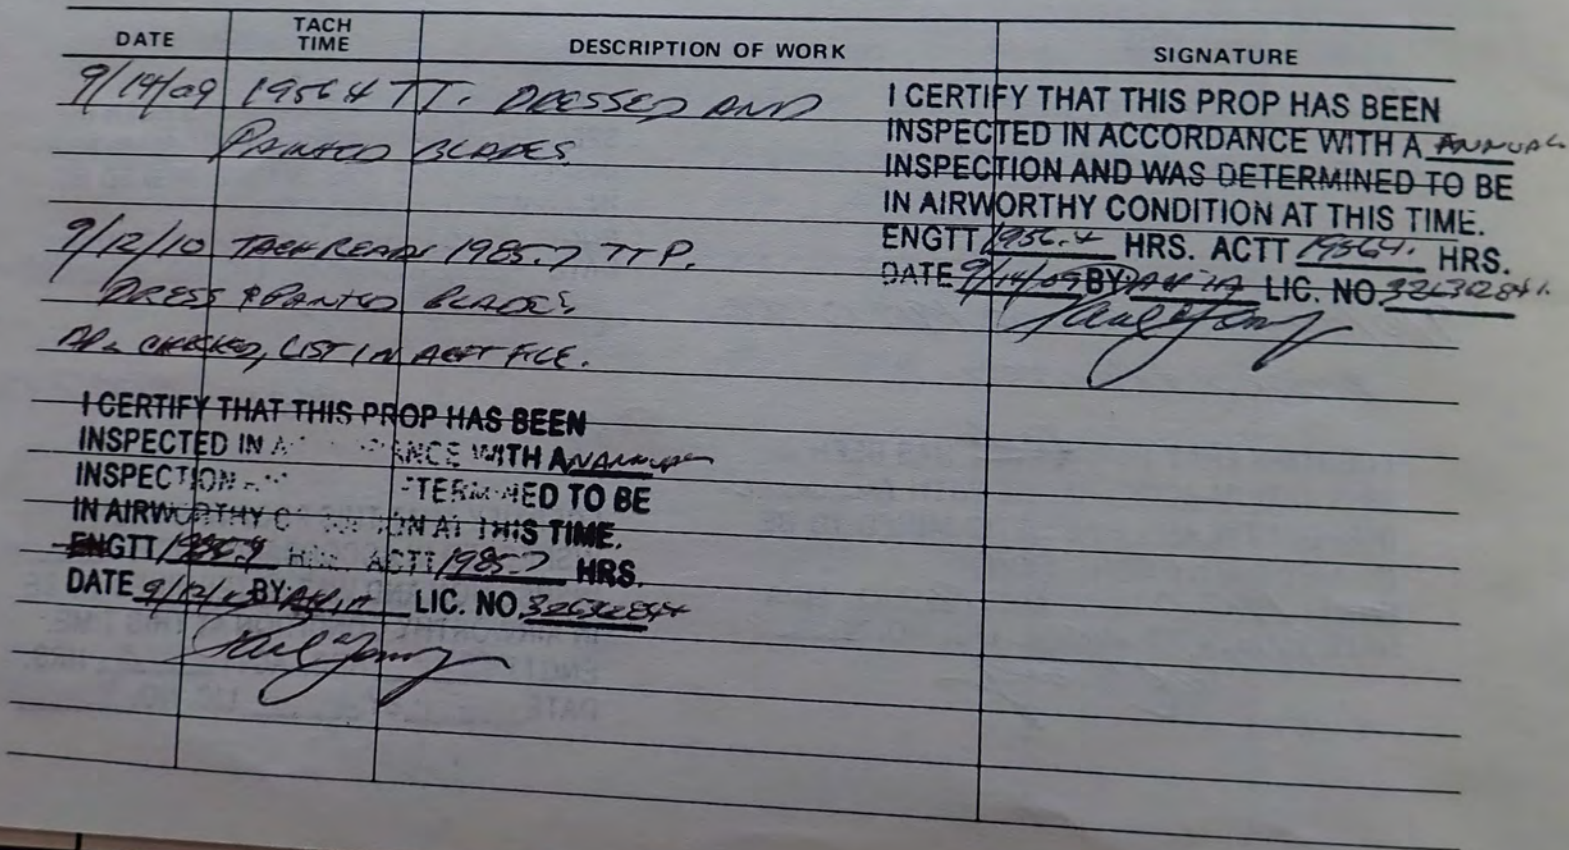 DATE TACH TIME DESCRIPTION OF WORK SIGNATURE
9/14/09 1956.4 TT. DRESSED AND
PAINTED BLADES
I CERTIFY THAT THIS PROP HAS BEEN
INSPECTED IN ACCORDANCE WITH A ANNUAL
INSPECTION AND WAS DETERMINED TO BE
IN AIRWORTHY CONDITION AT THIS TIME.
ENGTT 1956.4 HRS. ACTT 1956.4 HRS.
DATE 9/14/09 BY LIC. NO.
9/12/10 TACH READS 1985.7 TTP.
DRESS & PAINTED BLADES
ADs CHECKED, LIST IN ACFT FILE.
I CERTIFY THAT THIS PROP HAS BEEN
INSPECTED IN WITH AN ANNUAL
INSPECTION TO BE
IN AIRWORTHY AT THIS TIME.
ENGTT HRS. ACTT 1985.7 HRS.
DATE 9/12/10 BY LIC. NO.